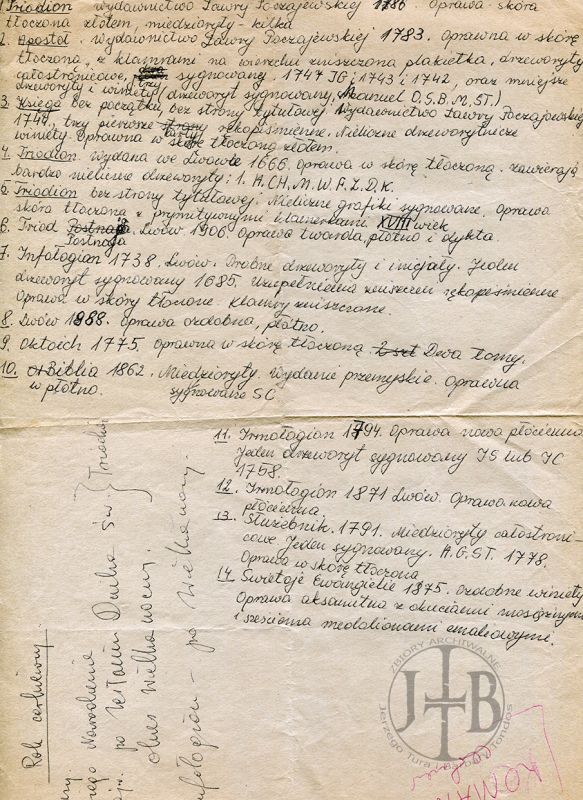 1. Triodion wydawnictwo Ławry Poczajewskiej 1786. Oprawa skóra
tłoczona złotem, miedzioryty - kilka
2. Apostoł. Wydawnictwo Ławry Poczajewskiej 1783. Oprawna w skórę
tłoczoną z klamrami na wierzchu zniszczona plakietka, drzeworyty
całostronicowe, sygnowany. 1747 JG i 1743 i 1742, oraz mniejsze
drzeworyty i winiety, drzeworyt sygnowany Manuel O.S.B.M, ST.)
3. Księga bez początku, bez strony tytułowej. Wydawnictwo Ławry Poczajewskiej
1744, trzy pierwsze karty rękopiśmienne. Nieliczne drzeworytnicze
winiety. Oprawna w skórę tłoczoną złotem.
4. Triodion. Wydana we Lwowie 1666. Oprawa w skórę tłoczoną. zawierają
bardzo nieliczne drzeworyty: 1. A.CH, M.W.F.Z.D.K.
5. Triodion bez strony tytułowej. Nieliczne grafiki sygnowane. Oprawa
skóra tłoczona z prymitywnymi klamerkami XVIII wiek
6. Triod Postnaja. Lwów 1906. Oprawa twarda, płótno i dykta.
Postnaja
7. Infołogian 1738. Lwów. Drobne drzeworyty i inicjały. Jeden
drzeworyt sygnowany 1685. Uzupełnienia zniszczeń rękopiśmienne
Oprawa w skórę tłoczone klamry zniszczone.
8. Lwów 1888. Oprawa ozdobna, płótno.
9. Oktoich 1775. Oprawna w skórę tłoczoną 2 szt Dwa tomy.
10. Biblia 1862. Miedzioryty. Wydanie przemyskie. Oprawna
w płótno. sygnowane SC
11. Irmołogian 1794. Oprawa nowa płócienna
Jeden drzeworyt sygnowany JS lub JC
1758.
12. Irmołogion 1871 Lwów. Oprawa nowa
płócienna
13. Służebnik. 1791. Miedzioryty całostroni-
cowe Jeden sygnowany. A.G.ST. 1778.
Oprawa w skórę tłoczona
14. Swiatoje Ewangielie 1875. Ozdobne winiety
Oprawa aksamitna z okuciami mosiężnymi
i sześcioma medalionami emaliowymi.
Rok cerkiewny.
Narodzenie
po zesłaniu Ducha św. } Triodion
okres Wielkanocny.
po Wielkanocy.
ZBIORY ARCHIWALNE
JTB
Jerzego Tura i Barbary Tondos